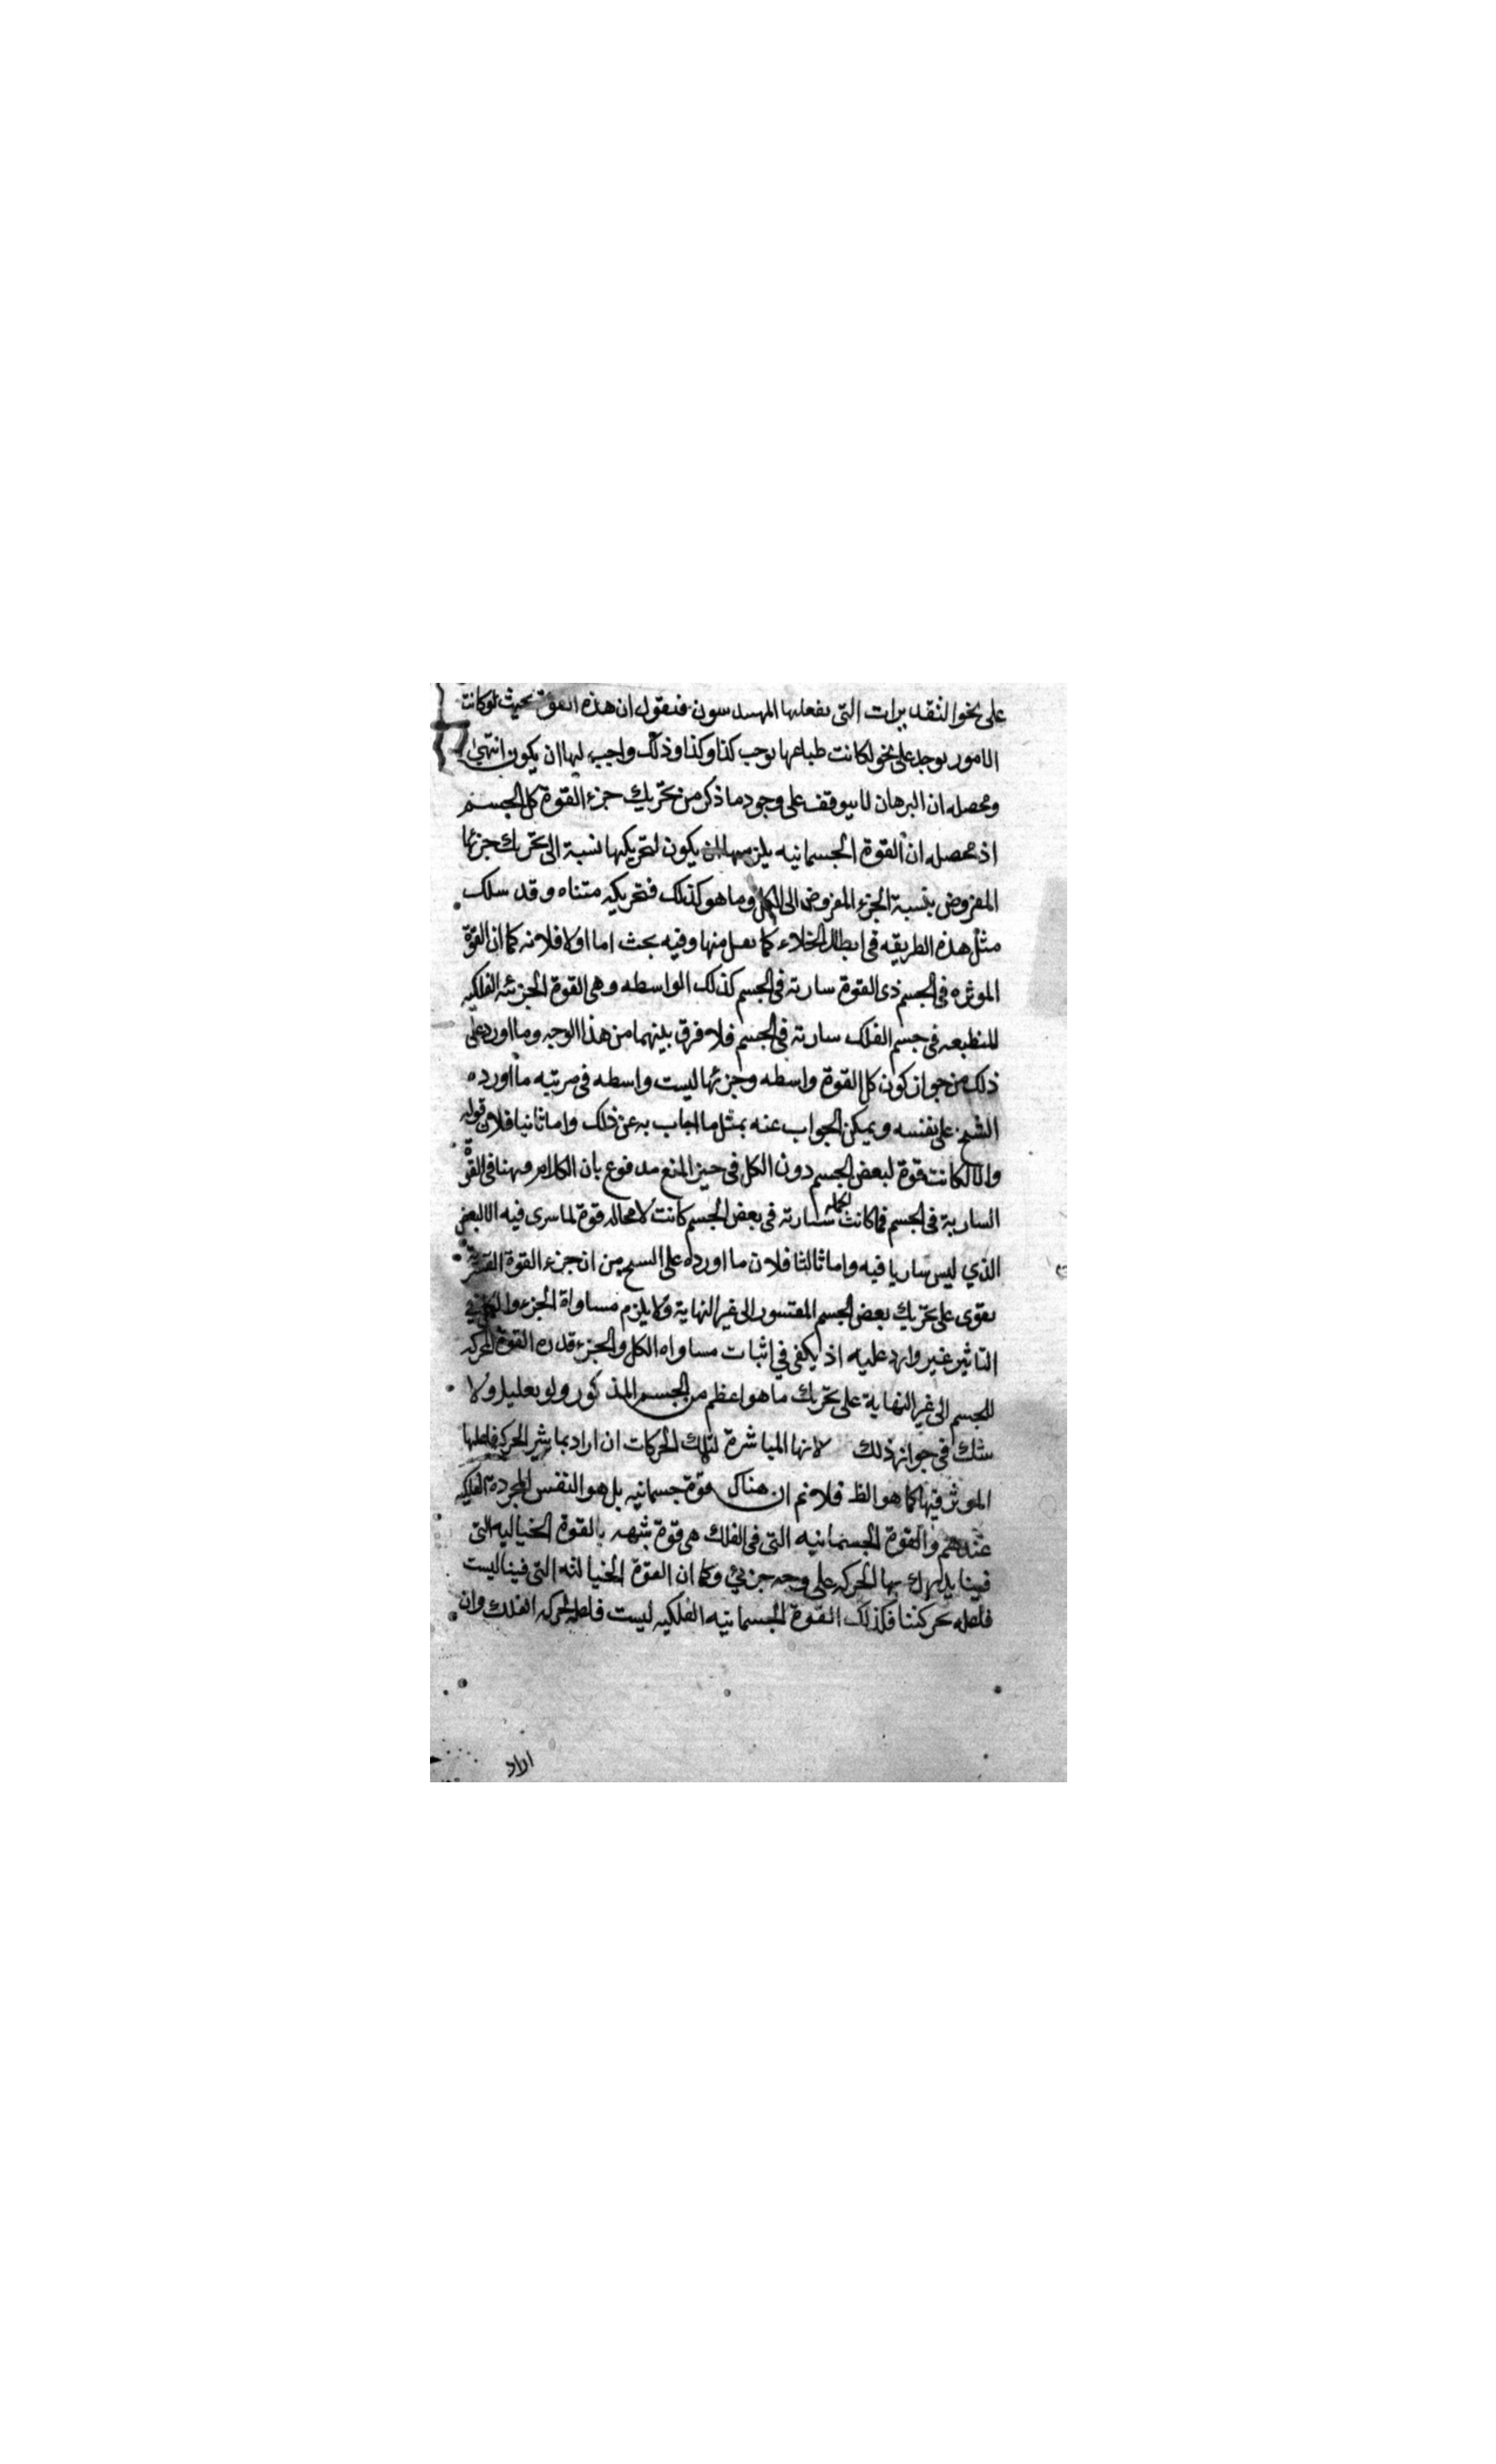 على نحو التقديرات التى يفعلها المهندسون فنقول ان هذه القوة بحيث لو كانت
الامور توجد على نحو لكانت طباعها توجب كذا وكذا وذلك واجب لها ان يكون انتهى
ومحصله ان البرهان لا يتوقف على وجود ما ذكر من تحريك جزء القوة كل الجسم
اذ محصله ان القوة الجسمانيه يلزمها ان يكون لتحريكها نسبة الى تحريك جزئها
المفروض بنسبة الجزء المفروض الى الكل وما هو كذلك فتحريكه متناه وقد سلك
مثل هذه الطريقه فى ابطال الخلاء كما نقل منها وفيه بحث اما اولا فلانه كما ان القوة
الموثره فى الجسم ذى القوة سارية فى الجسم كذلك الواسطه وهى القوة الجزئيه الفلكيه
المنطبعه فى جسم الفلك سارية فى الجسم فلا فرق بينهما من هذا الوجه وما اورد على
ذلك من جواز كون كل القوة واسطه وجزئها ليست واسطه فى مرتبه ما اورده
الشيخ على نفسه ويمكن الجواب عنه بمثل ما اجاب به عن ذلك واما ثانيا فلان قوله
والا لكانت قوة لبعض الجسم دون الكل فى حيز المنع مدفوع بان الكلام ههنا فى القوة
السارية فى الجسم فما كانت سارية فى بعض الجسم كانت لا محاله قوة لما سرى فيه لا لبعض
الجمله
الذي ليس ساريا فيه واما ثالثا فلان ما اورده على الشيخ من ان جزء القوة القسرية
يقوى على تحريك بعض الجسم المقسور الى غير النهاية ولا يلزم مساواة الجزء والكل فى
التاثير غير وارد عليه اذ يكفى في اثبات مساواه الكل والجزء قدره القوة المحركه
للجسم الى غير النهاية على تحريك ما هو اعظم من الجسم المذكور ولو بقليل ولا
شك فى جواز ذلك لانها المباشرة لتلك الحركات ان اراد بمباشر الحركه فاعلها
الموثر فيها كما هو الظ فلا نم ان هناك قوة جسمانيه بل هو النفس المجردة الفلكيه
عندهم والقوة الجسمانيه التى فى الفلك هى قوة شبهه بالقوة الخياليه التى
فينا يدرك بها الحركه على وجه جزئي وكما ان القوة الخياليه التى فينا ليست
فاعله لحركتنا فكذلك القوة الجسمانيه الفلكيه ليست فاعله لحركه الفلك وان
اراد